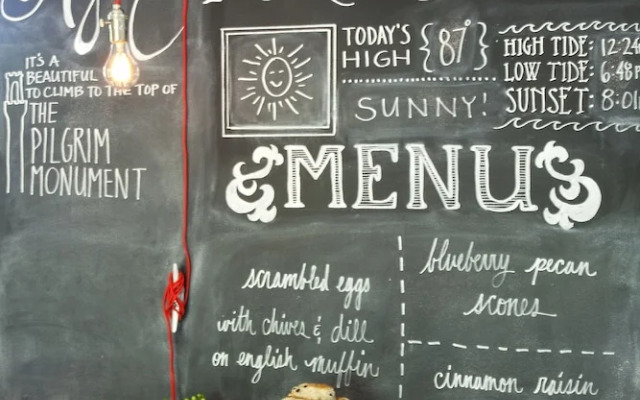 IT'S A
BEAUTIFUL
TO CLIMB TO THE TOP OF
THE
PILGRIM
MONUMENT
TODAY'S
HIGH {87°}
SUNNY!
HIGH TIDE:
LOW TIDE:
SUNSET:
MENU
scrambled eggs
with chives & dill
on english muffin
blueberry pecan
scones
cinnamon raisin